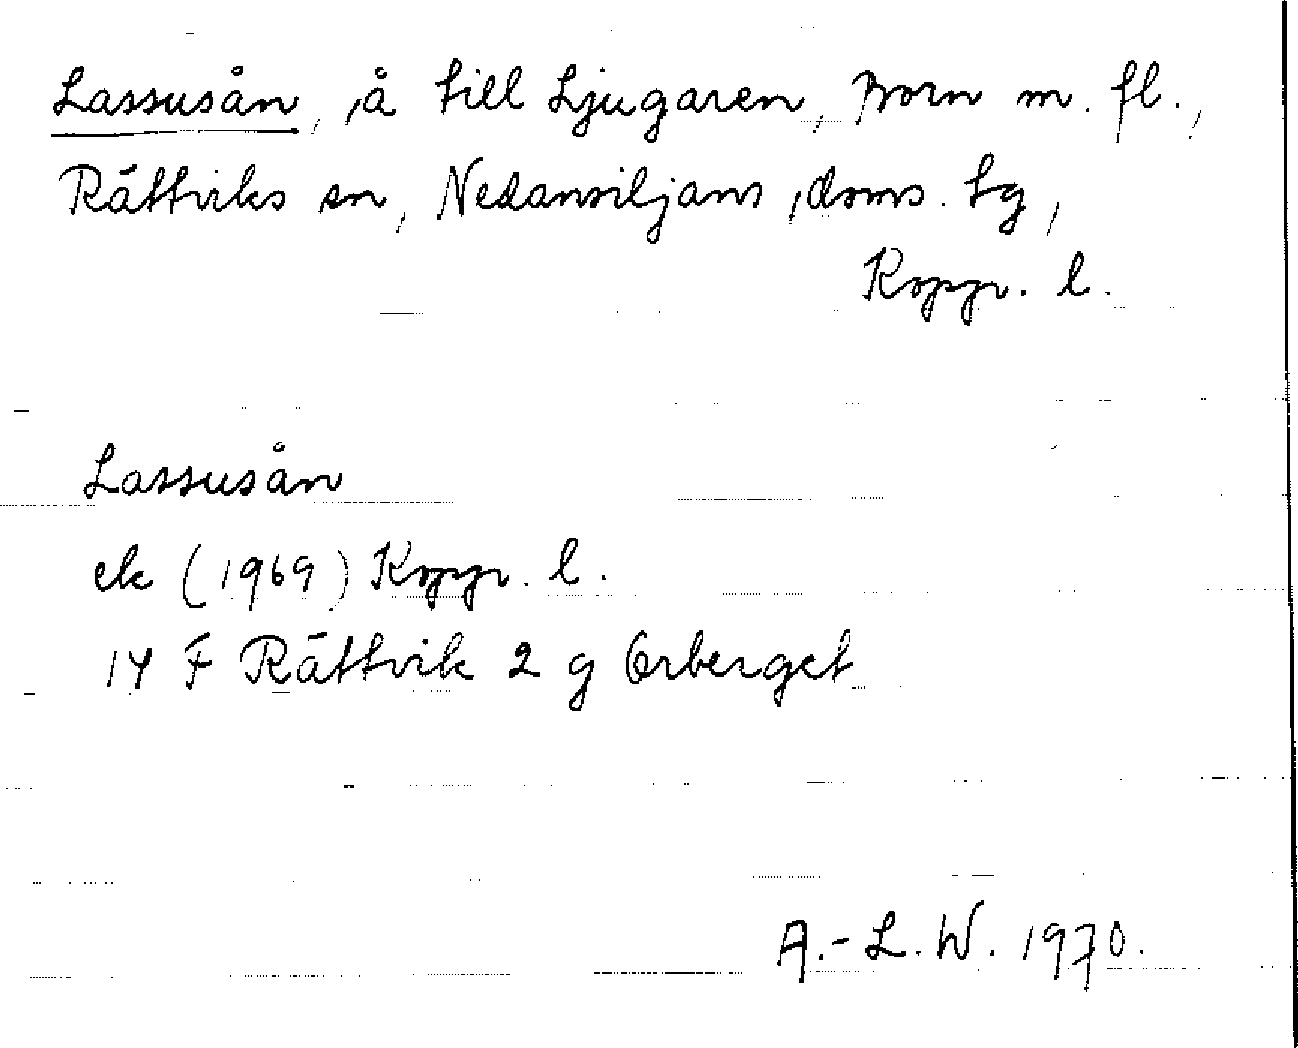 Lassusån, å till Ljugaren, Born m. fl.,
Rättviks sn, Nedansiljans doms. tg,
Koppr. l.
Lassusån
ek (1969) Koppr. l.
14 F Rättvik 2 g Orberget
A.-L. W. 1970.